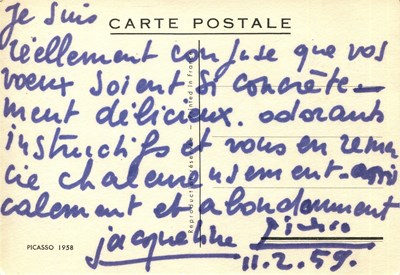 Je suis
CARTE POSTALE
réellement confuse que vos
vœux soient si concrète-
ment délicieux. odorants
instructifs et vous en remer
cie chaleureusement - ami
calement et abondamment
jacqueline Picasso
PICASSO 1958
11.2.59.